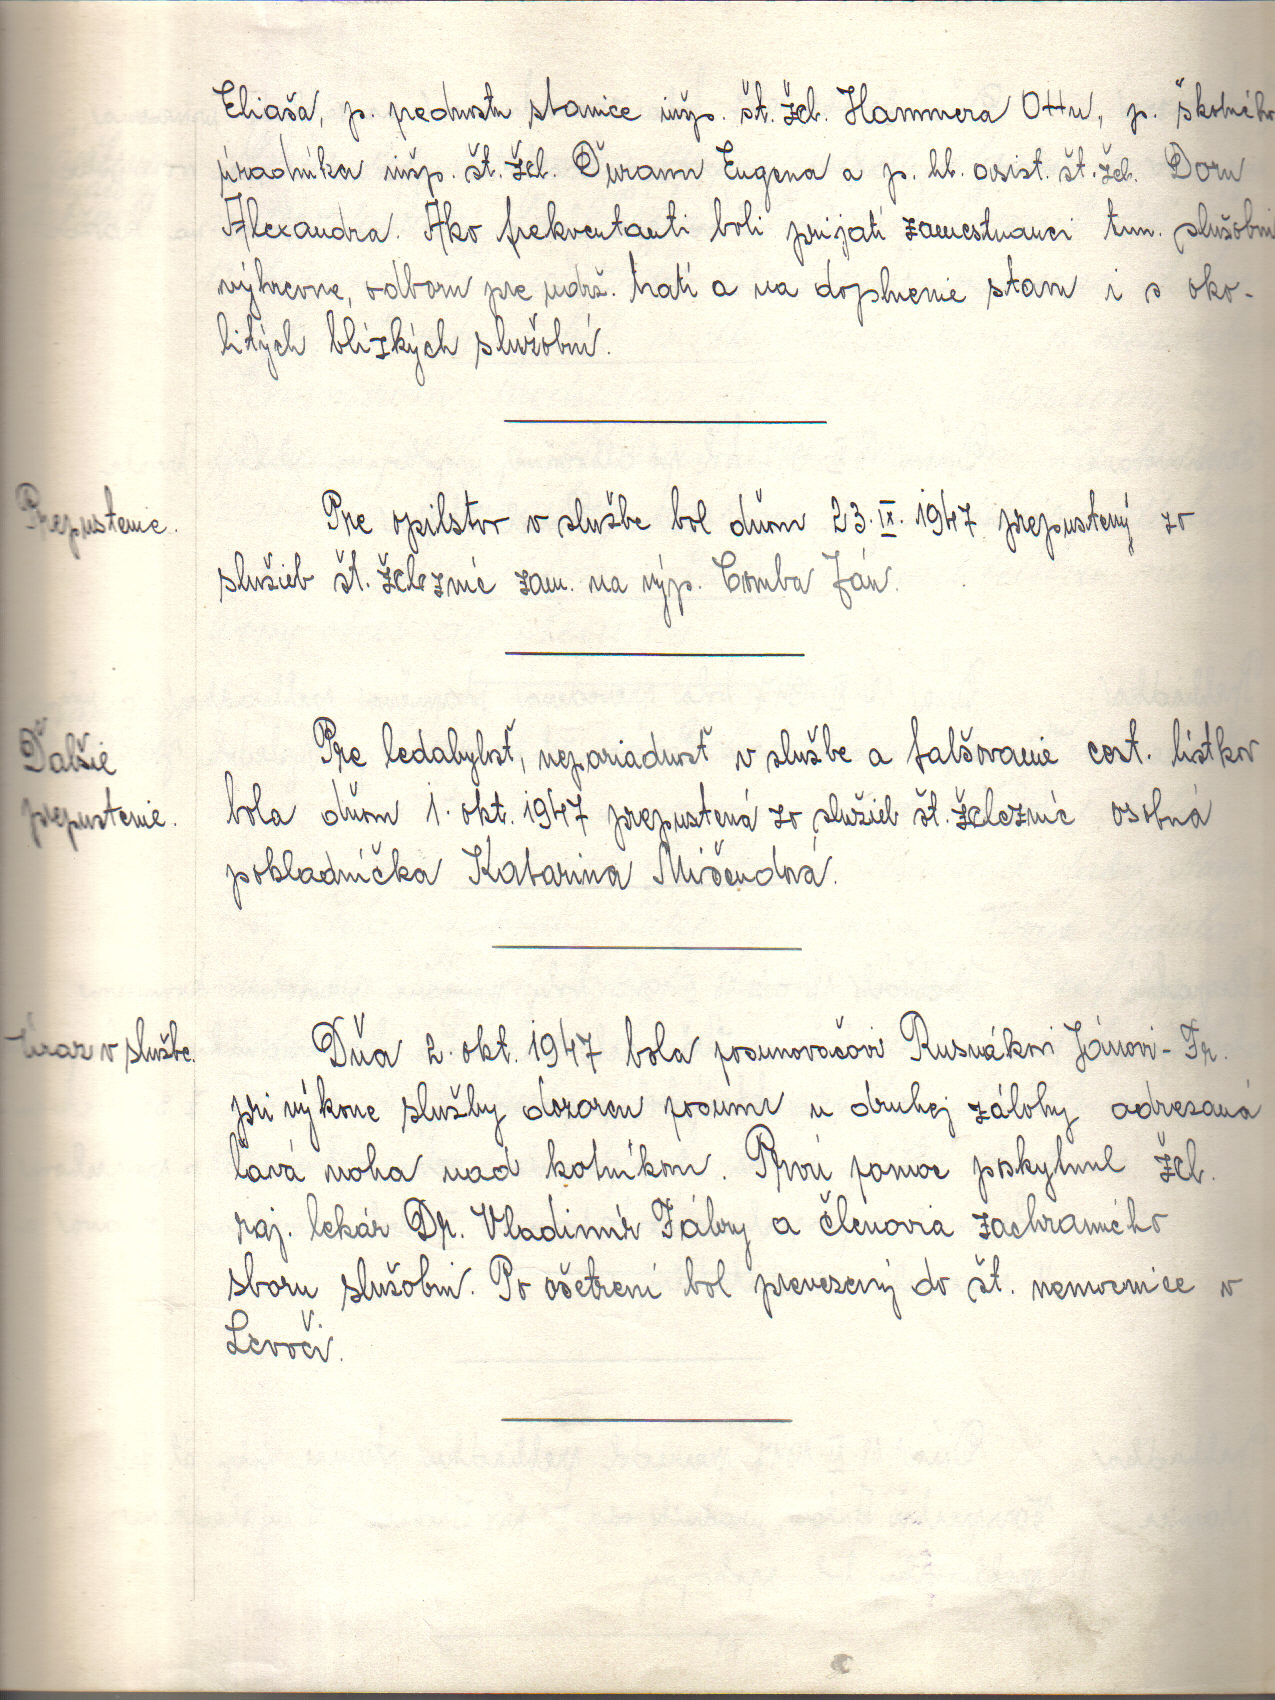 Eliaša, p. prednostu stanice inšp. št. žel. Hammera Ottu, p. školného
úradníka inšp. št. žel. Ďurann Eugena a p. hl. asist. št. žel. Dorn
Alexandra. Ako frekventanti boli prijatí zamestnanci tun. služobní
výhrevne, odboru pre udrž. tratí a na doplnenie stavu i s oko-
litých blízkých služobní.
Prepustenie. Pre opilstvo v službe bol dňom 23.IX. 1947 prepustený zo
služieb št. železníc zam. na výp. Comba Ján.
Ďalšie Pre ledabylosť, neporiadnosť v službe a falšovanie cest. lístkov
prepustenie. bola dňom 1. okt. 1947 prepustená zo služieb št. železníc osobná
pokladníčka Katarina Miščendová.
Úraz v službe. Dňa 2. okt. 1947 bola posunovačovi Rusnákovi Jánovi-Fr.
pri výkone služby dozorcu posunu u druhej zálohy odrezaná
ľavá noha nad kotníkom. Prvú pomoc poskytnul žel.
raj. lekár Dr. Vladimír Fábry a členovia zachranného
sboru služobni. Po ošetrení bol prevezený do št. nemocnice v
Levoči.